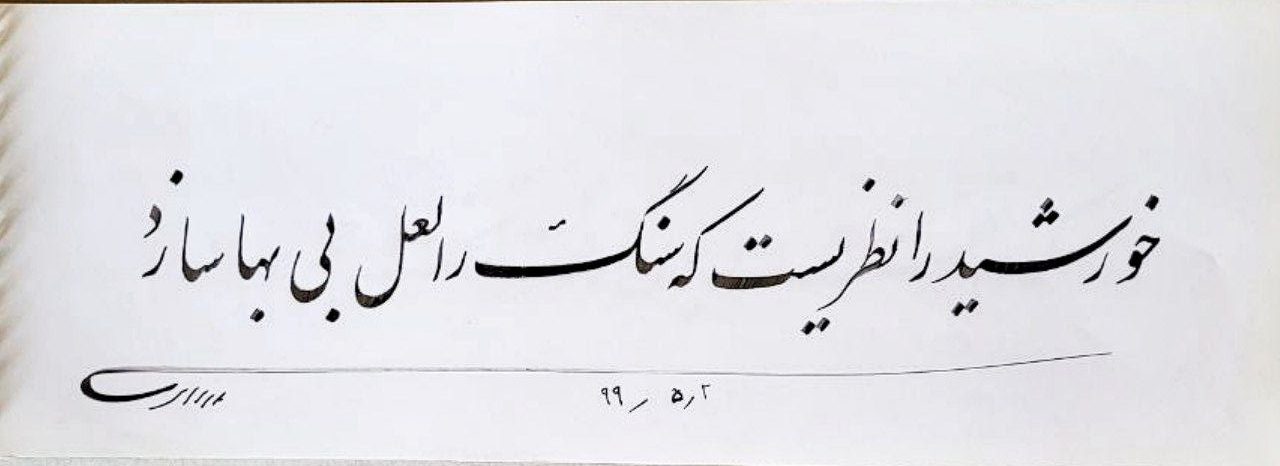 خورشید را نظریست که سنگ را لعل بی بها سازد
۹۹ ر ۵ر۲